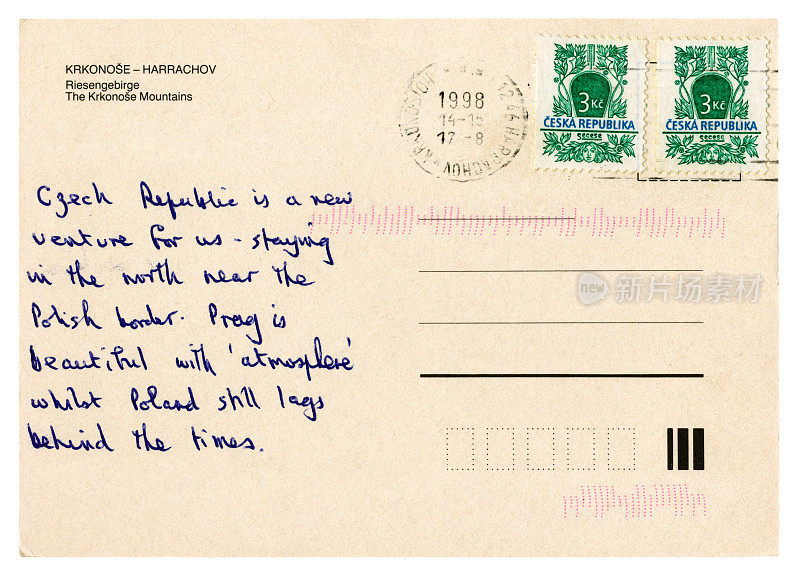 KRKONOŠE – HARRACHOV
Riesengebirge
The Krkonoše Mountains
1998
14-15
17-8
HARRACHOV
3 Kč
ČESKÁ REPUBLIKA
SECESE
3 Kč
ČESKÁ REPUBLIKA
SECESE
Czech Republic is a new
venture for us - staying
in the north near the
Polish border. Prag is
beautiful with 'atmosphere'
whilst Poland still lags
behind the times.
new 新片场素材